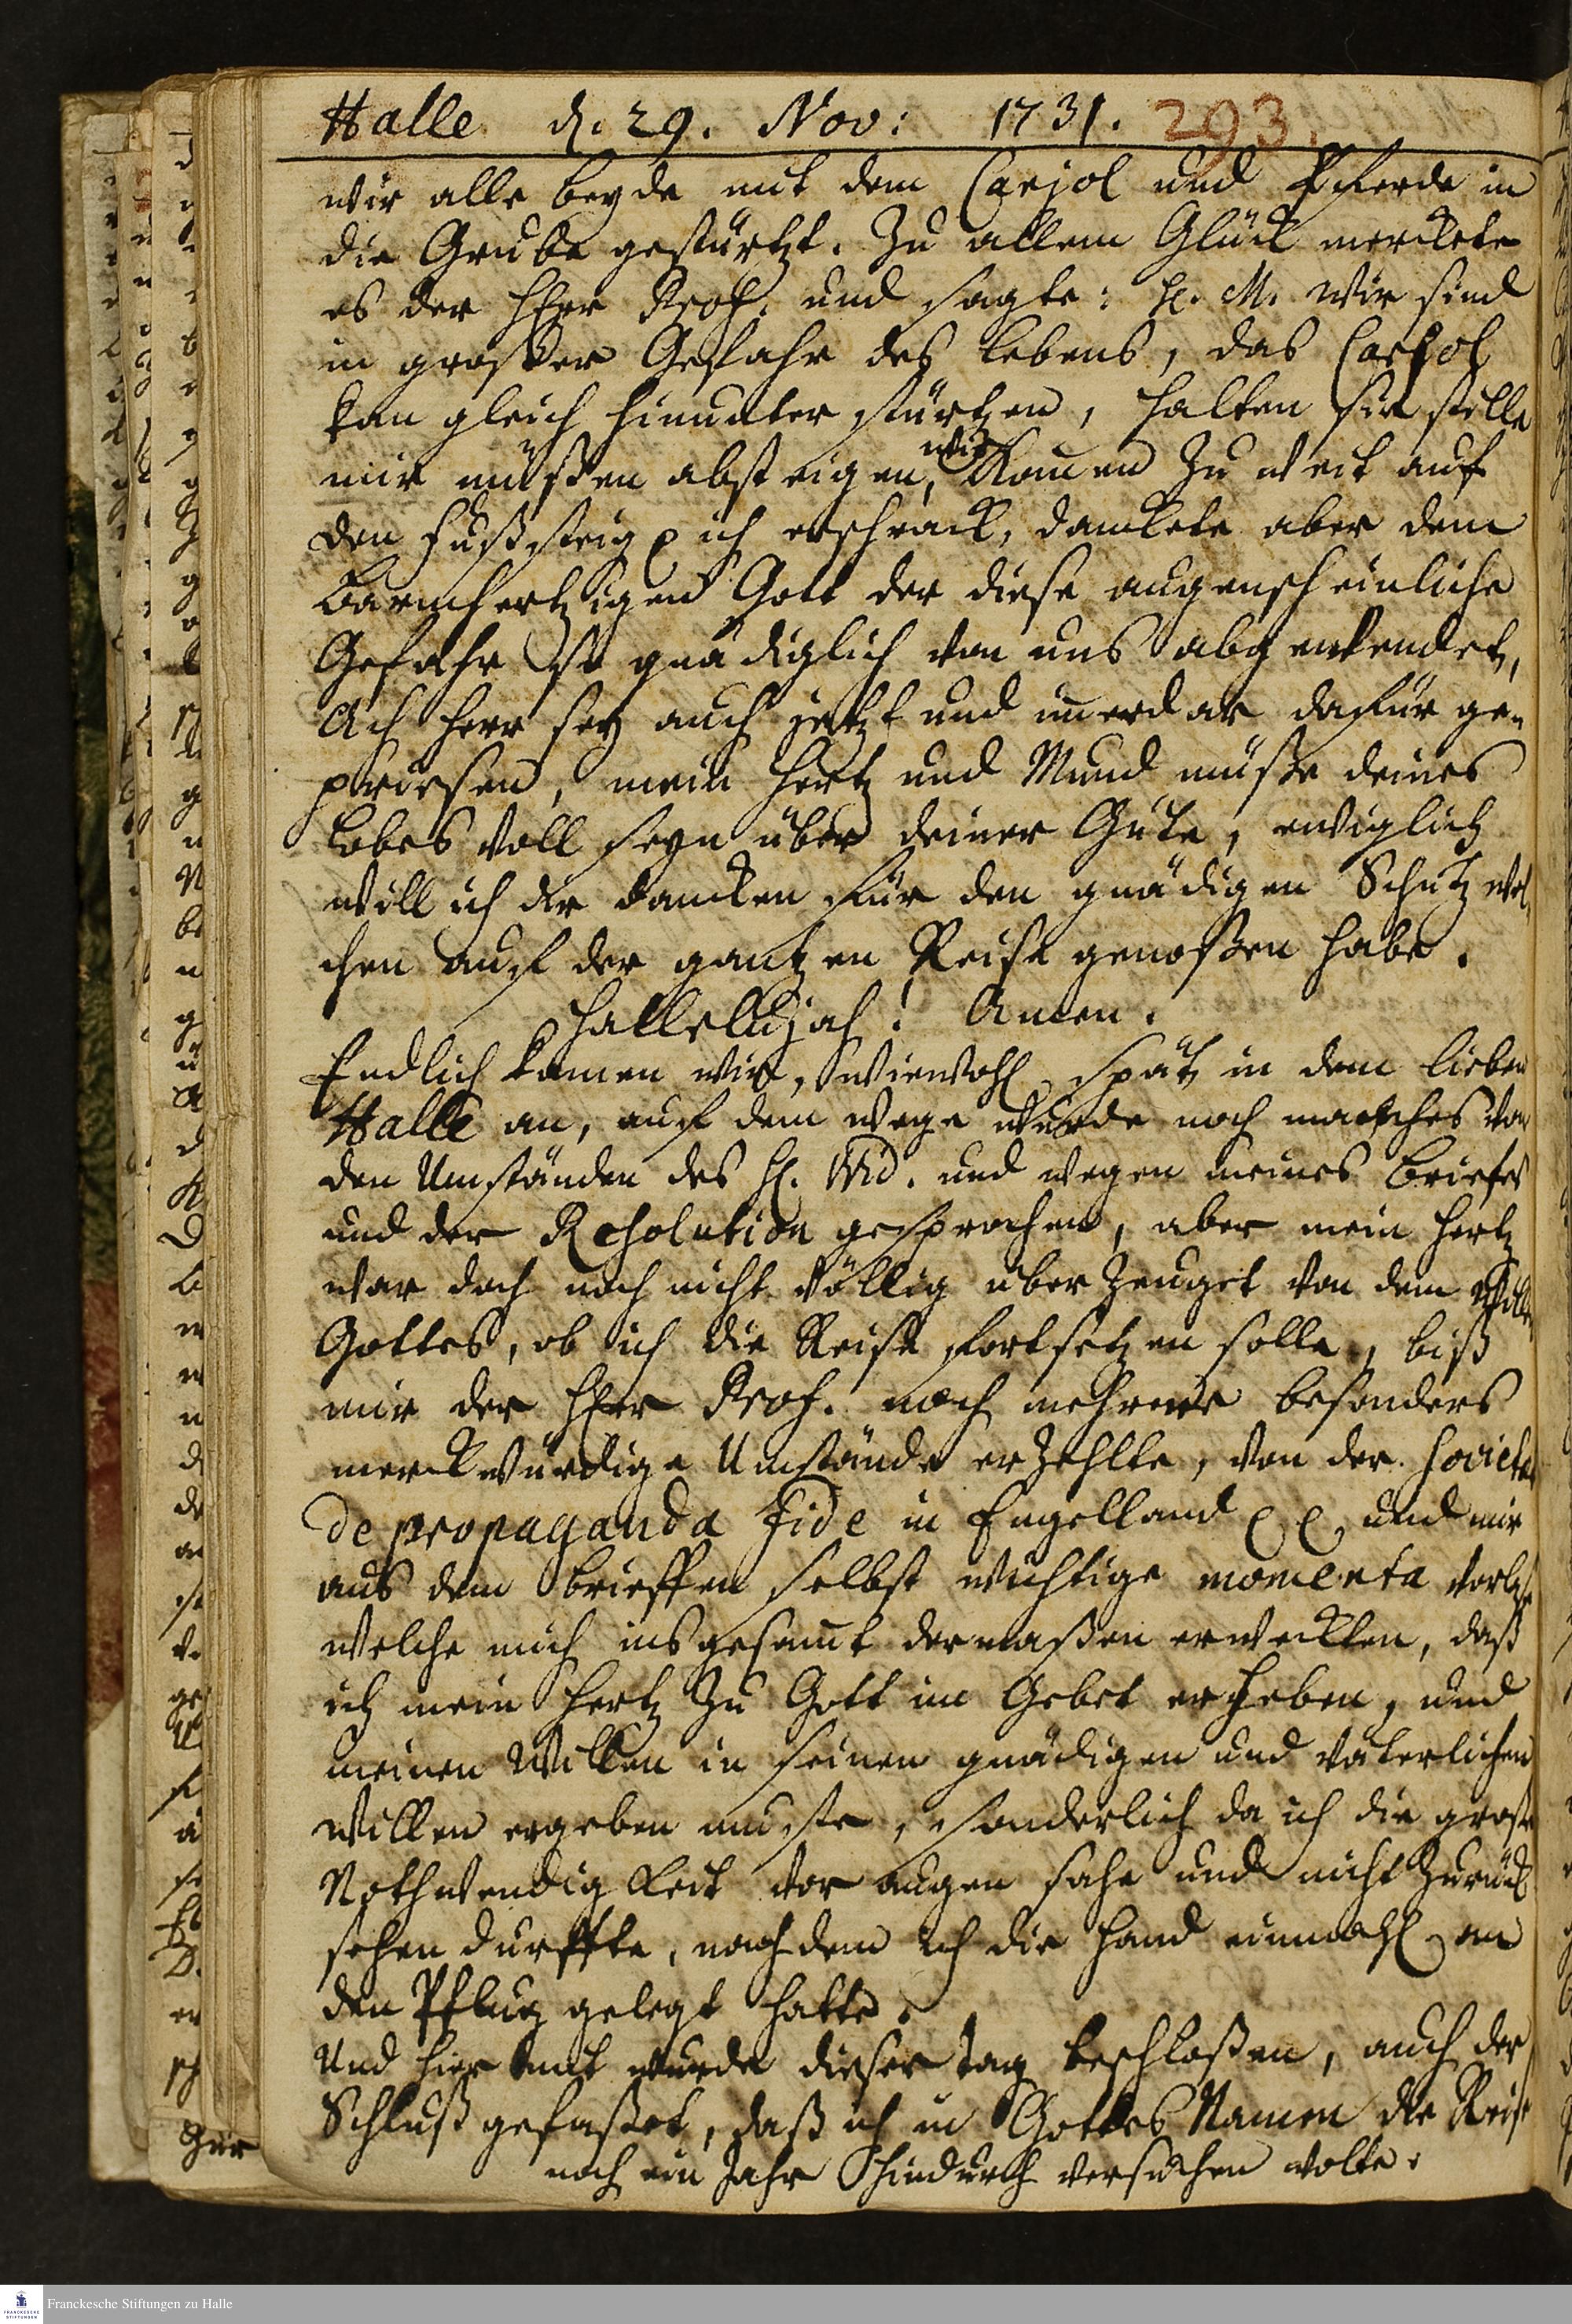 Halle d. 29. Nov: 1731. 293.
wir alle beyde mit dem Carjol und Pferde in
die Grube gestürtzt. Zu allem Glück merckete
es der HErr Prof. und sagte: H. M. wir sind
in großer Gefahr des Lebens, das Carjol
kan gleich hinunter stürtzen, halten sie stille
wir müßen absteigen, wir kamen zu weit auf
den Fußsteig ich erschrack, danckete aber dem
Barmhertzigen Gott der diese augenscheinliche
Gefahr so gnädiglich von uns abgewendet,
Ach Herr sey auch jetzt und im̄erdar dafür ge-
priesen, mein Hertz und Mund müße deines
Lobes voll seyn über deiner Güte, ewiglich
will ich dir dancken für den gnädigen Schutz wel-
chen auf der gantzen Reise genoßen habe.
Hallelujah! Amen.
Endlich kamen wir, wiewohl spät in dem lieben
Halle an, auf dem Wege wurde noch manches von
den Umständen des H. Wid. und wegen meines Briefes
und der Resolution gesprochen, aber mein Hertz
war doch noch nicht völlig überzeuget von dem Willen
Gottes, ob ich die Reise fortsetzen solle, biß
mir der HErr Prof. noch mehrere besonders
merckwürdige Umstände erzehlte, von der Societat
de propaganda Fide in Engelland und mir
aus dem Brieffen selbst wichtige momenta vorlase
welche mich insgesam̄t dermaßen erweckten, daß
ich mein Hertz zu Gott im Gebet erheben, und
meinen Willen in seinen gnädigen und väterlichen
Willen ergeben muste, sonderlich da ich die große
Nothwendigkeit vor augen sahe und nicht zurück
sehen durffte, nachdem ich die Hand einmahl an
den Pflug gelegt hatte.
Und hiermit wurde dieser Tag beschloßen, auch der
Schluß gefaßet, daß ich in Gottes Namen die Reise
noch ein Jahr hindurch versuchen wolte.
Zur
Franckesche Stiftungen zu Halle